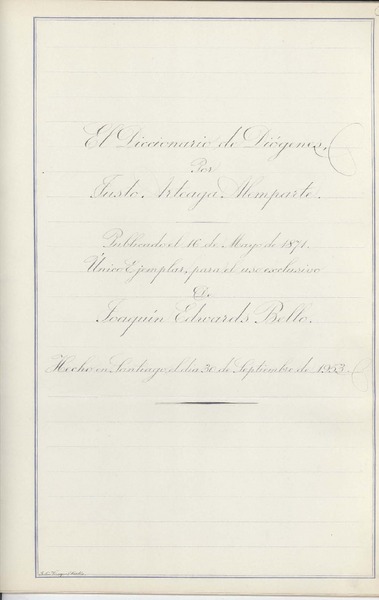 El Diccionario de Diógenes.
Por
Justo. Arteaga Alemparte.
Publicado el 16 de Mayo de 1871.
Único Ejemplar, para el uso exclusivo
D.
Joaquín Edwards Bello.
Hecho en Santiago, el dia 30 de Septiembre de 1953